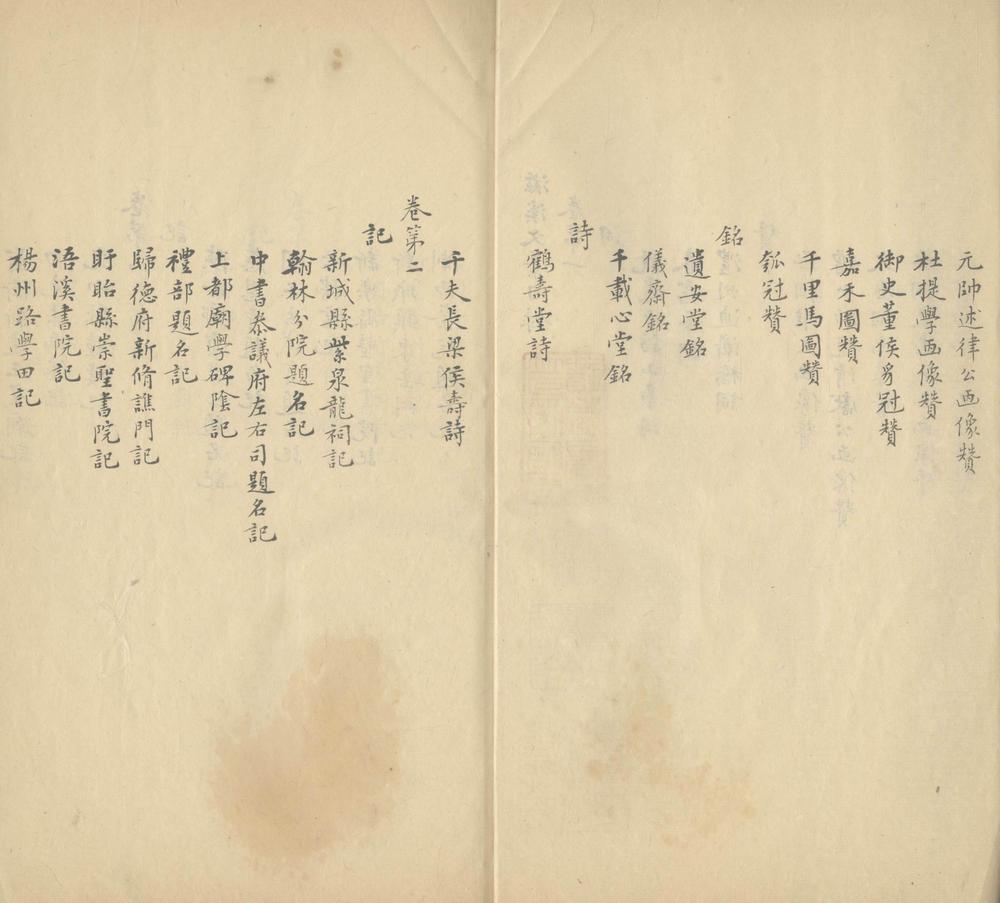 元帥述律公画像贊
杜提學画像贊
御史董侯豸冠贊
嘉禾圖贊
千里馬圖贊
瓠冠贊
銘
遺安堂銘
儀齋銘
千載心堂銘
詩
鶴壽堂詩
千夫長梁侯壽詩
卷第二
記
新城縣紫泉龍祠記
翰林分院題名記
中書叅議府左右司題名記
上都廟學碑陰記
禮部題名記
歸德府新脩譙門記
盱眙縣崇聖書院記
浯溪書院記
楊州路學田記